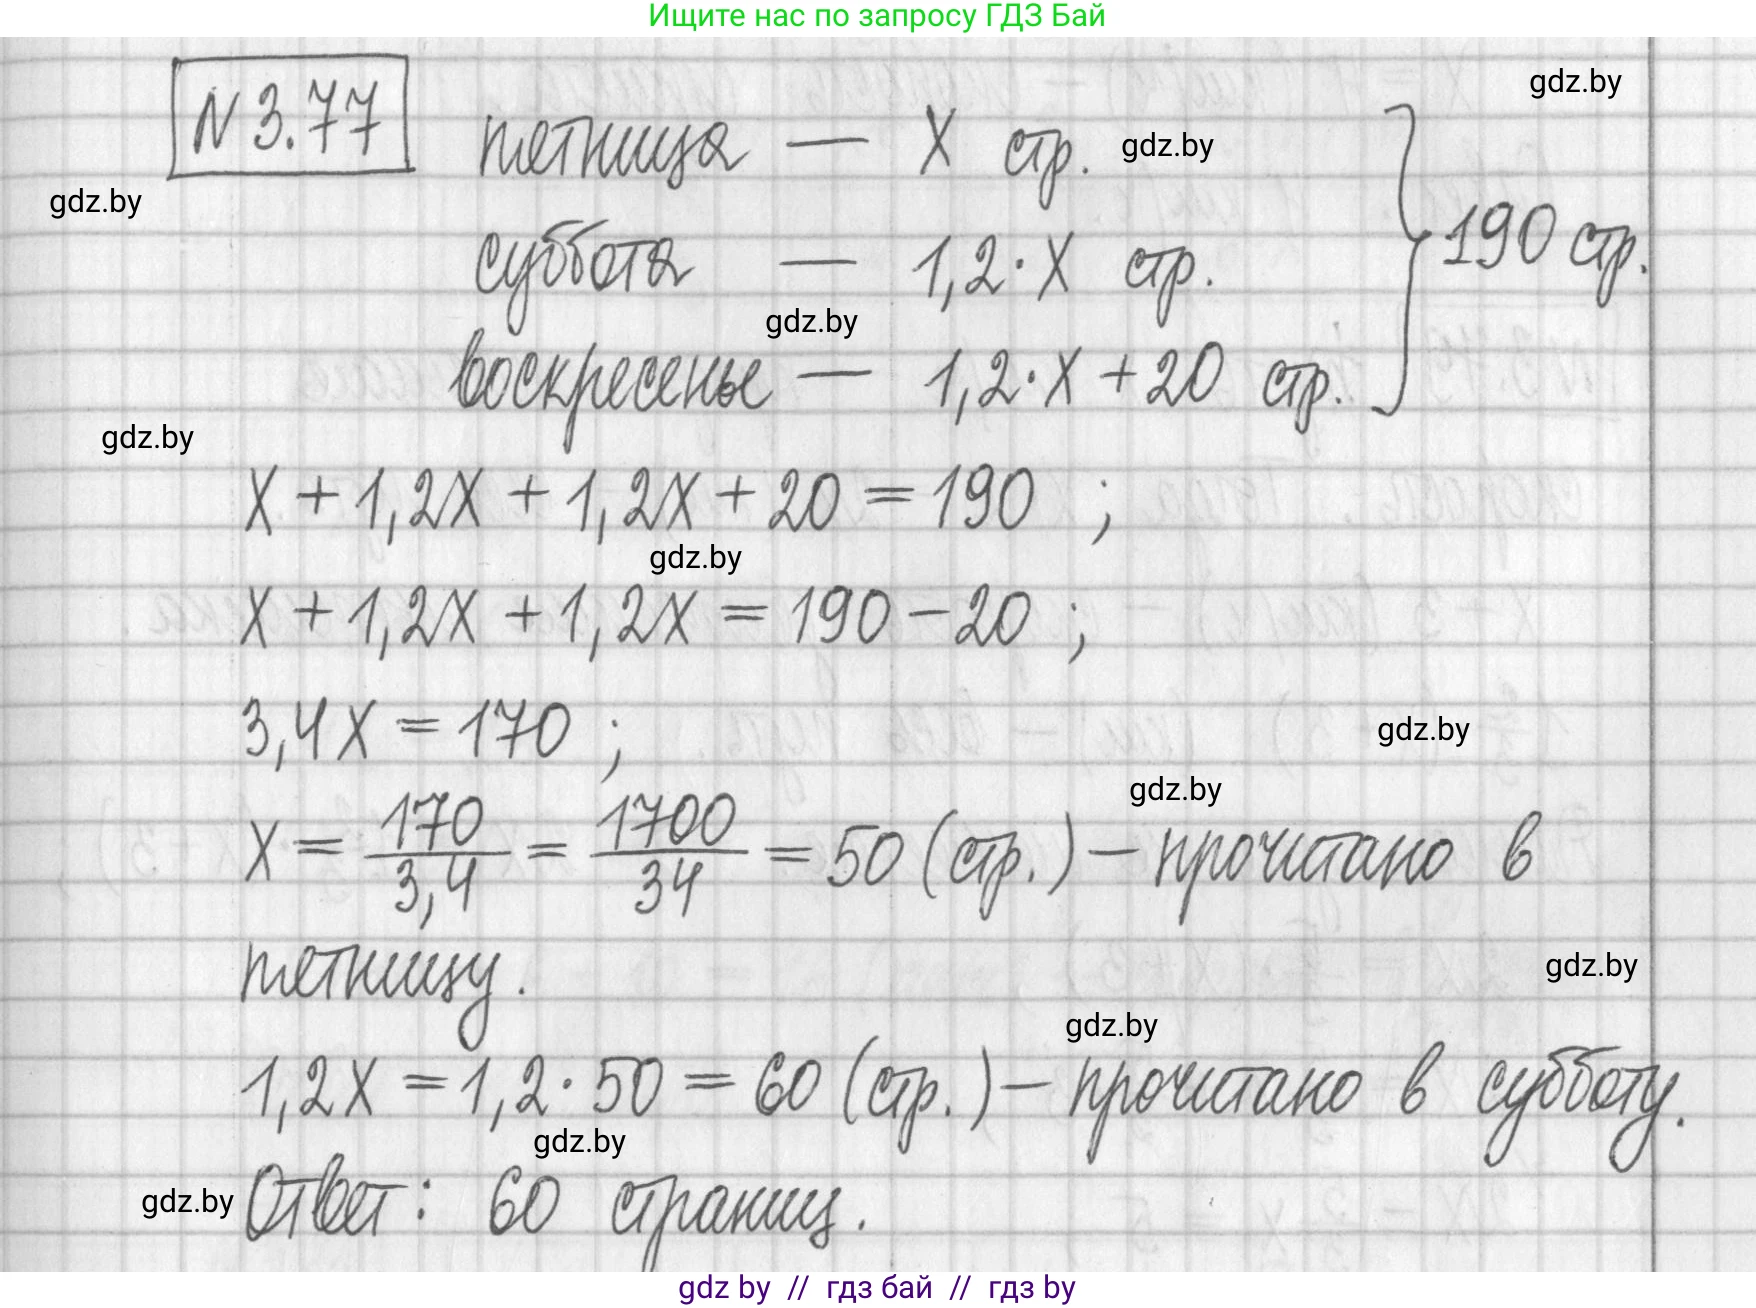 Ищите нас по запросу ГДЗ Бай
gdz.by
N 3.77 петница — X стр. gdz.by
gdz.by
суббота — 1,2·X стр. 190 стр.
gdz.by
воскресенье — 1,2·X + 20 стр.
gdz.by
X + 1,2X + 1,2X + 20 = 190 ;
gdz.by
X + 1,2X + 1,2X = 190 – 20 ;
3,4X = 170 ;
gdz.by
gdz.by
X = 170/3,4 = 1700/34 = 50 (стр.) – прочитано в
петницу.
gdz.by
gdz.by
1,2X = 1,2·50 = 60 (стр.) – прочитано в субботу.
gdz.by
gdz.by Ответ: 60 страниц.
gdz by // гдз бай // гдз by